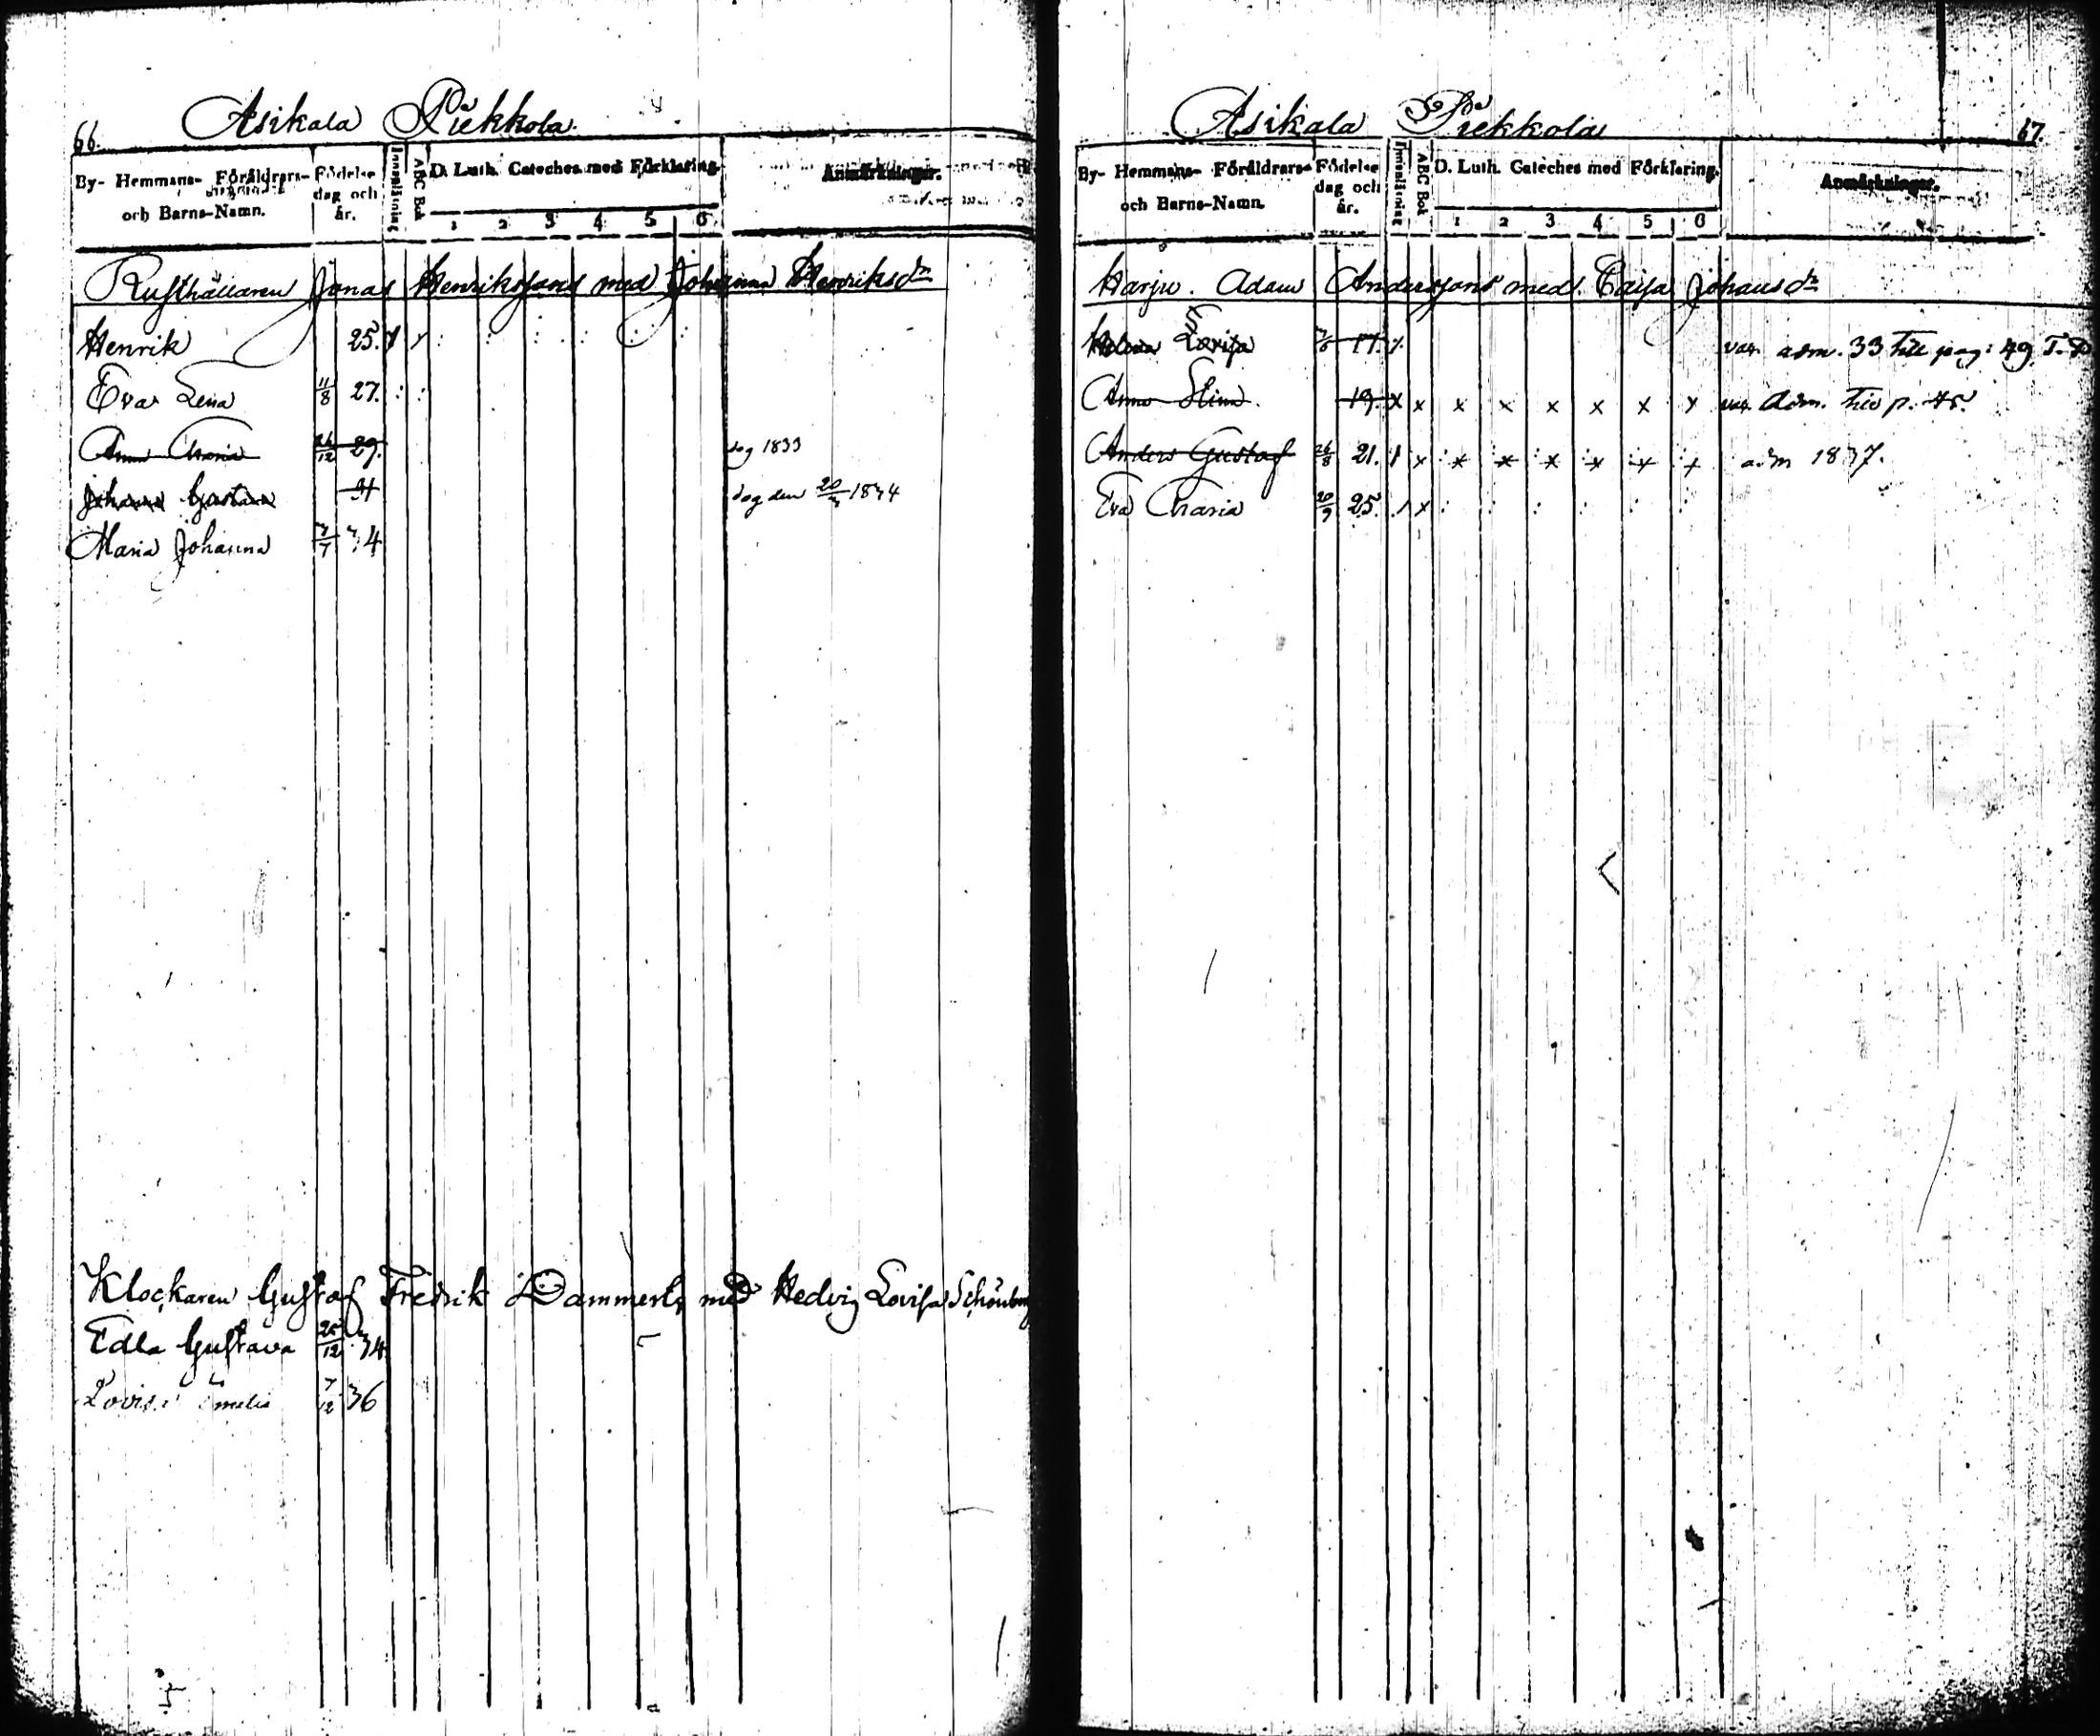 66.
Asikala Piekkola.
By- Hemmans- Föräldrars- och Barns-Namn.
Födelse dag och år.
Innanläsning
ABC Bok
D. Luth. Cateches med Förklaring.
1 2 3 4 5 6
Anmärkningar.
Rusthållaren Jonas Henrikssons med Johanna Henriksdr
Henrik 25.
Eva Lena 11/8 27.
Anna Maria 26/12 29. dog 1833
Johanna Gustava 31 dog den 20/3 1834
Maria Johanna 7/7 34
Klockaren Gustaf Fredrik Dammert, med Hedvig Lovisa Schönberg
Edla Gustava 25/12 34.
Lovisa Emelie 7/12 36
67.
Asikala Piekkola
By- Hemmans- Föräldrars- och Barns-Namn.
Födelse dag och år.
Innanläsning
ABC Bok
D. Luth. Cateches med Förklaring.
1 2 3 4 5 6
Anmärkningar.
Harju. Adam Anderssons med Caisa Johansdr
Helena Lovisa 17. var. adm. 33 till pag: 49 T.
Anna Stina. 19. x x x x x x x x var. Adm.
Anders Gustaf 26/8 21. x x x x x x x adm 1837.
Eva Maria 20/9 25. x